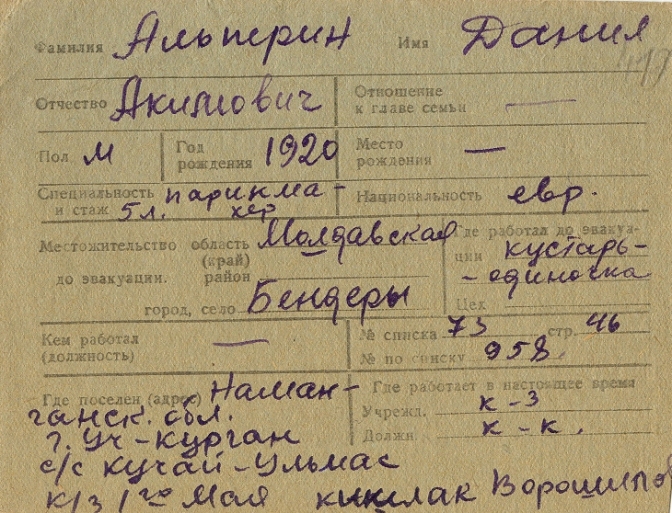 Фамилия Альперин Имя Данил
Отчество Акимович Отношение к главе семьи —
Пол М Год рождения 1920 Место рождения —
Специальность и стаж парикма-
5 л. хер Национальность евр.
Местожительство область (край) Молдавская Где работал до эвакуа-
ции кустарь-
до эвакуации. район -одиночка
город, село Бендеры Цех
Кем работал (должность) — № списка 73 стр. 46
№ по списку 958.
Где поселен (адрес) Наман- Где работает в настоящее время
ганск. обл. Учрежд. к-з
г. Уч-Курган Должн. к-к.
с/с Кучай-Ульмас
к/з 1го Мая кишлак Ворошилов